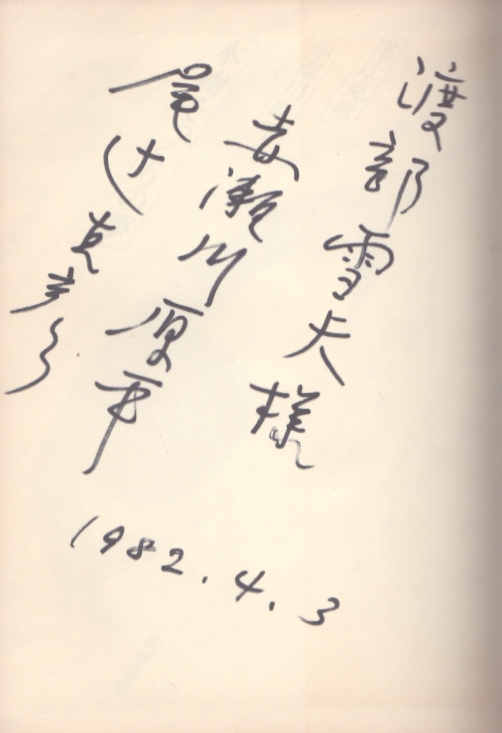 渡部雪夫様
赤瀬川原平
尾辻克彦
1982.4.3